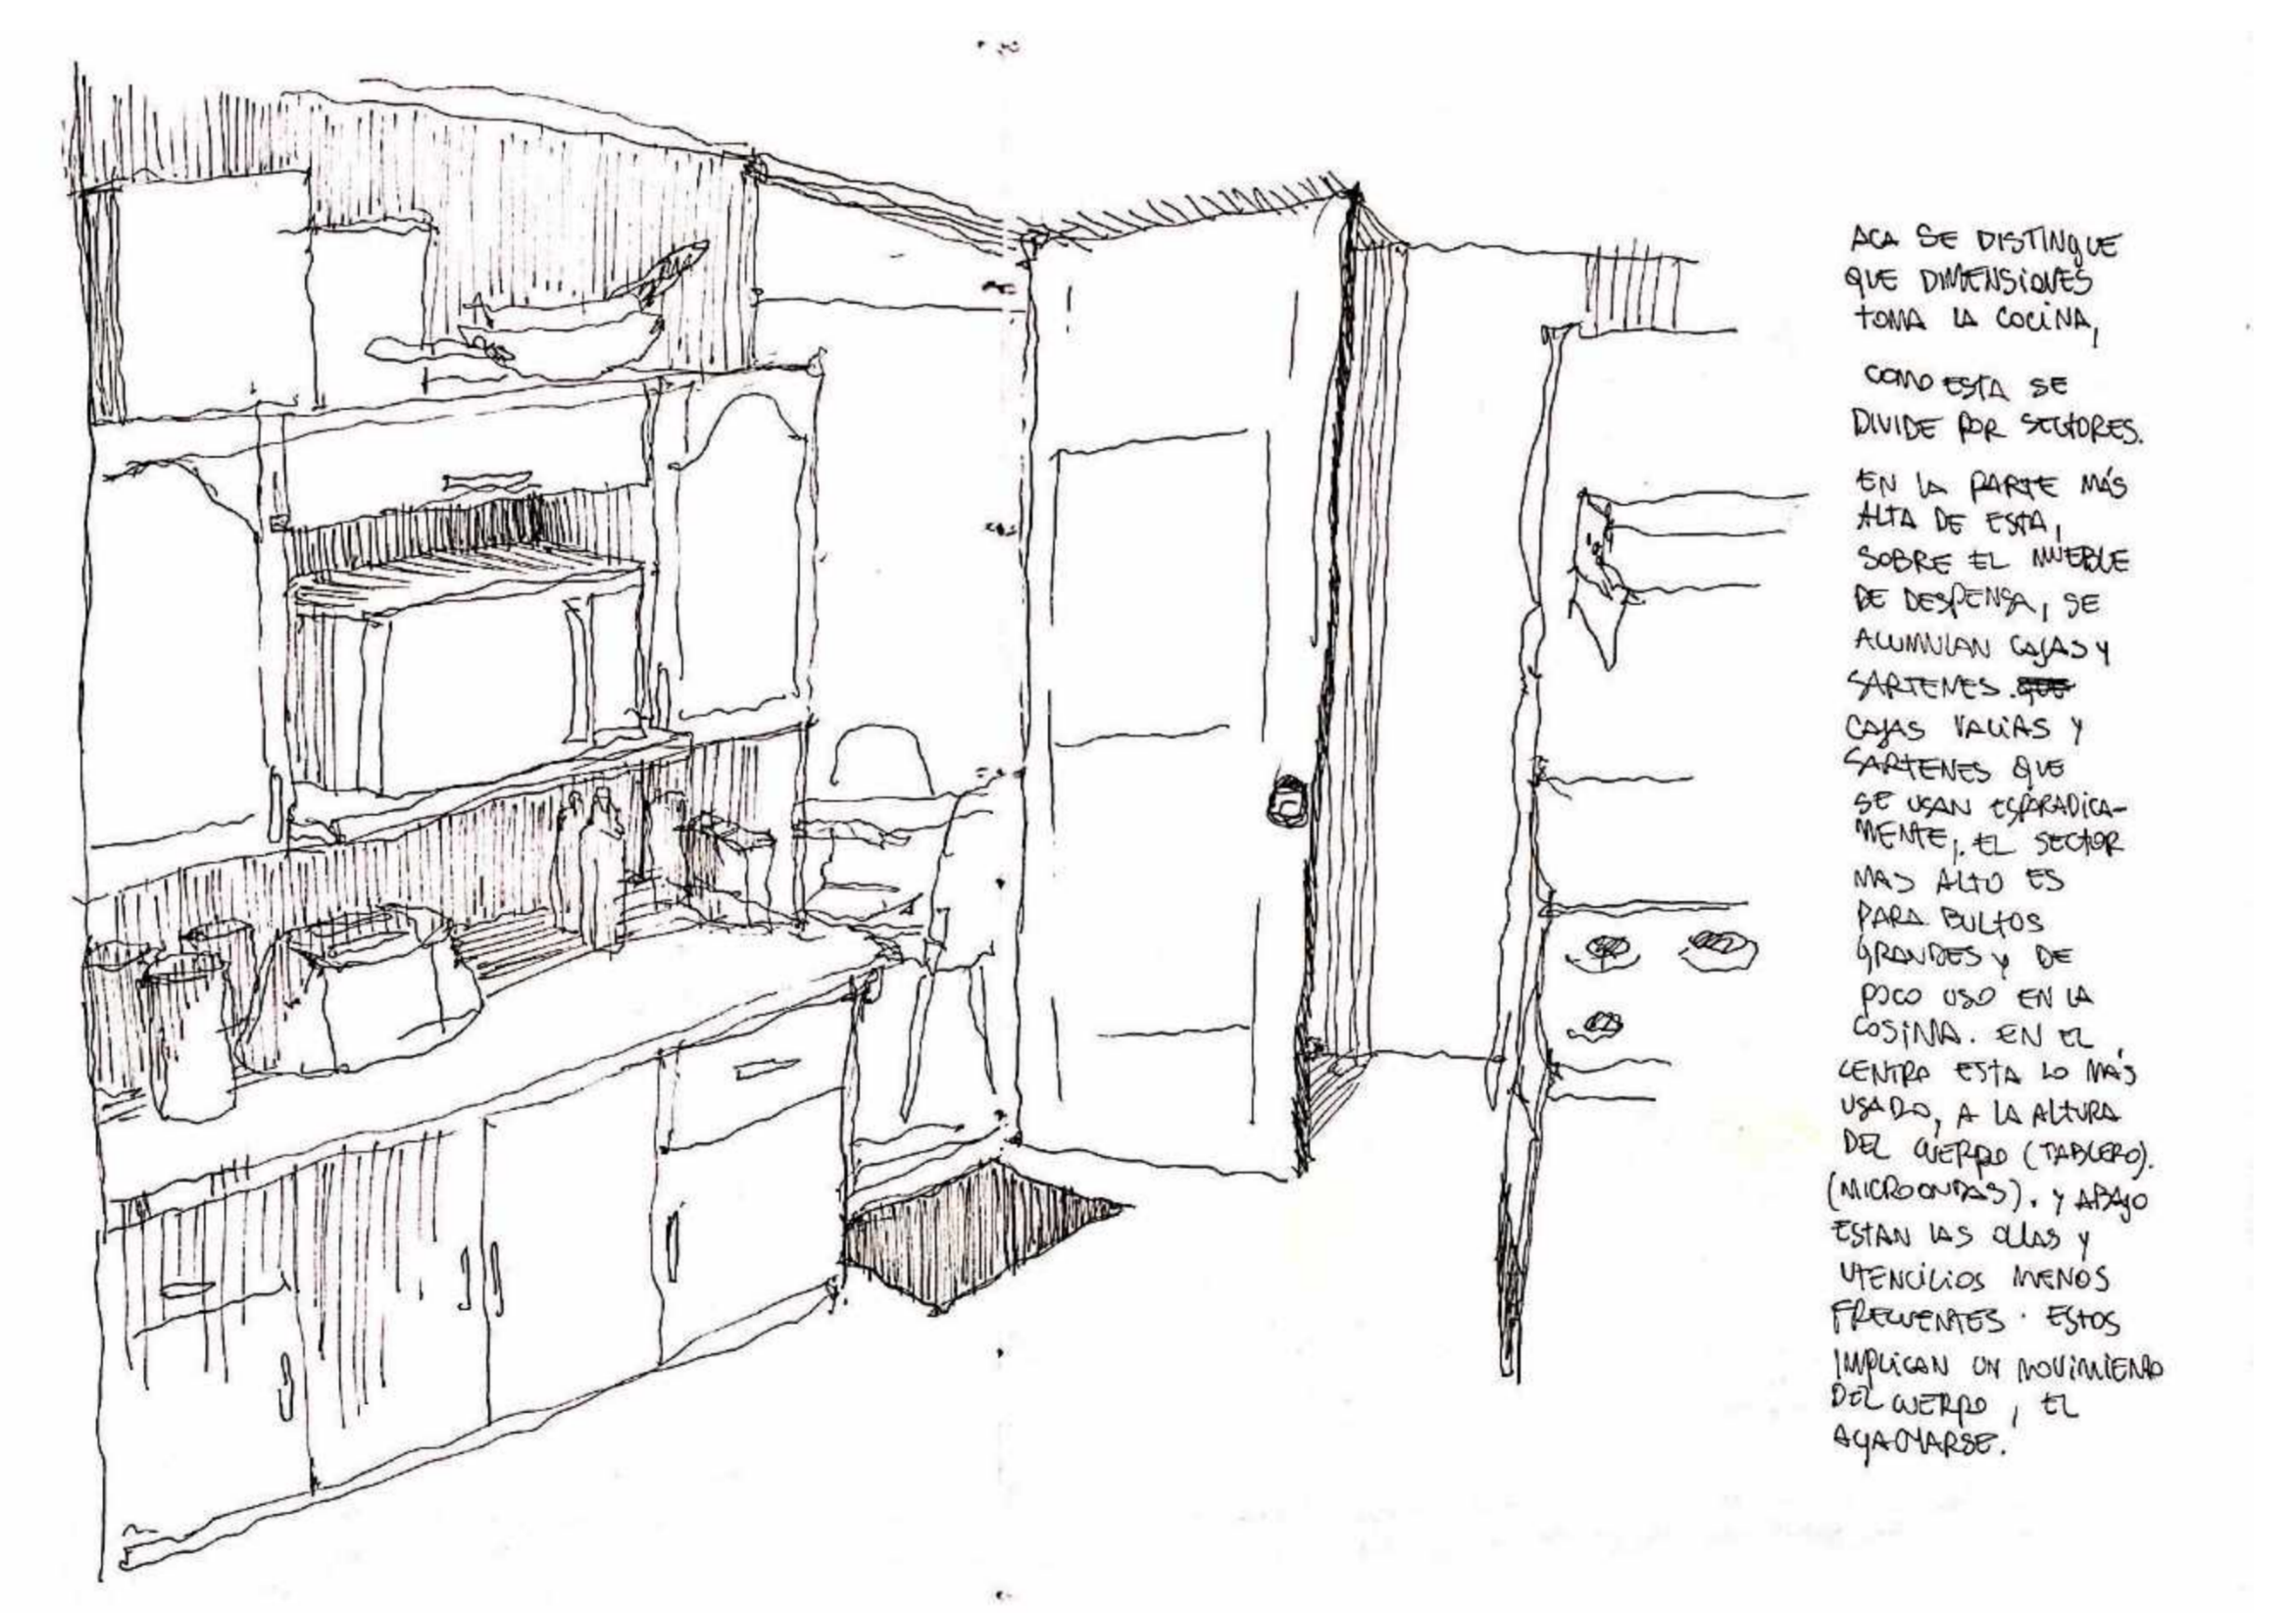 ACA SE DISTINGUE
QUE DIMENSIONES
TOMA LA COCINA,
COMO ESTA SE
DIVIDE POR SECTORES.
EN LA PARTE MÁS
ALTA DE ESTA,
SOBRE EL MUEBLE
DE DESPENSA, SE
ACUMULAN CAJAS Y
SARTENES. QUE
CAJAS VACIAS Y
SARTENES QUE
SE USAN ESPORADICA-
MENTE, EL SECTOR
MAS ALTO ES
PARA BULTOS
GRANDES Y DE
POCO USO EN LA
COSINA. EN EL
CENTRO ESTA LO MÁS
USADO, A LA ALTURA
DEL CUERPO (TABLERO).
(MICROONDAS). Y ABAJO
ESTAN LAS OLLAS Y
UTENCILIOS MENOS
FRECUENTES. ESTOS
IMPLICAN UN MOVIMIENTO
DEL CUERPO, EL
AGACHARSE.